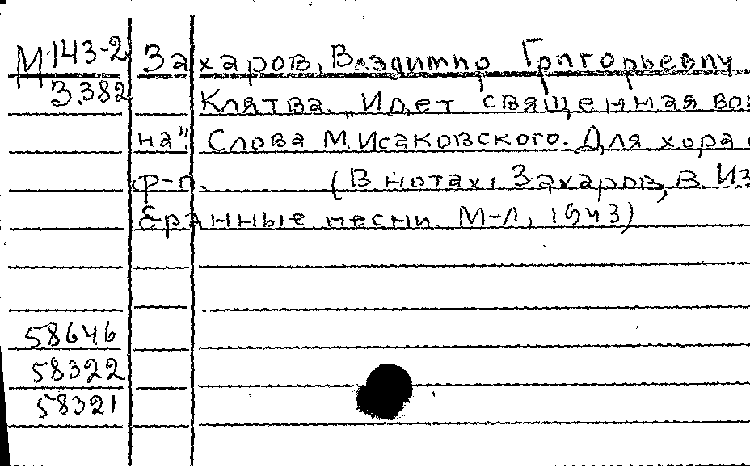 М 143-2 Захаров, Владимир Григорьевич
З.382 Клятва. "Идет священная вой
на". Слова М. Исаковского. Для хора с
ф-п. (В нотах: Захаров, В. Из
бранные песни. М-Л, 1943)
58646
58322
58321